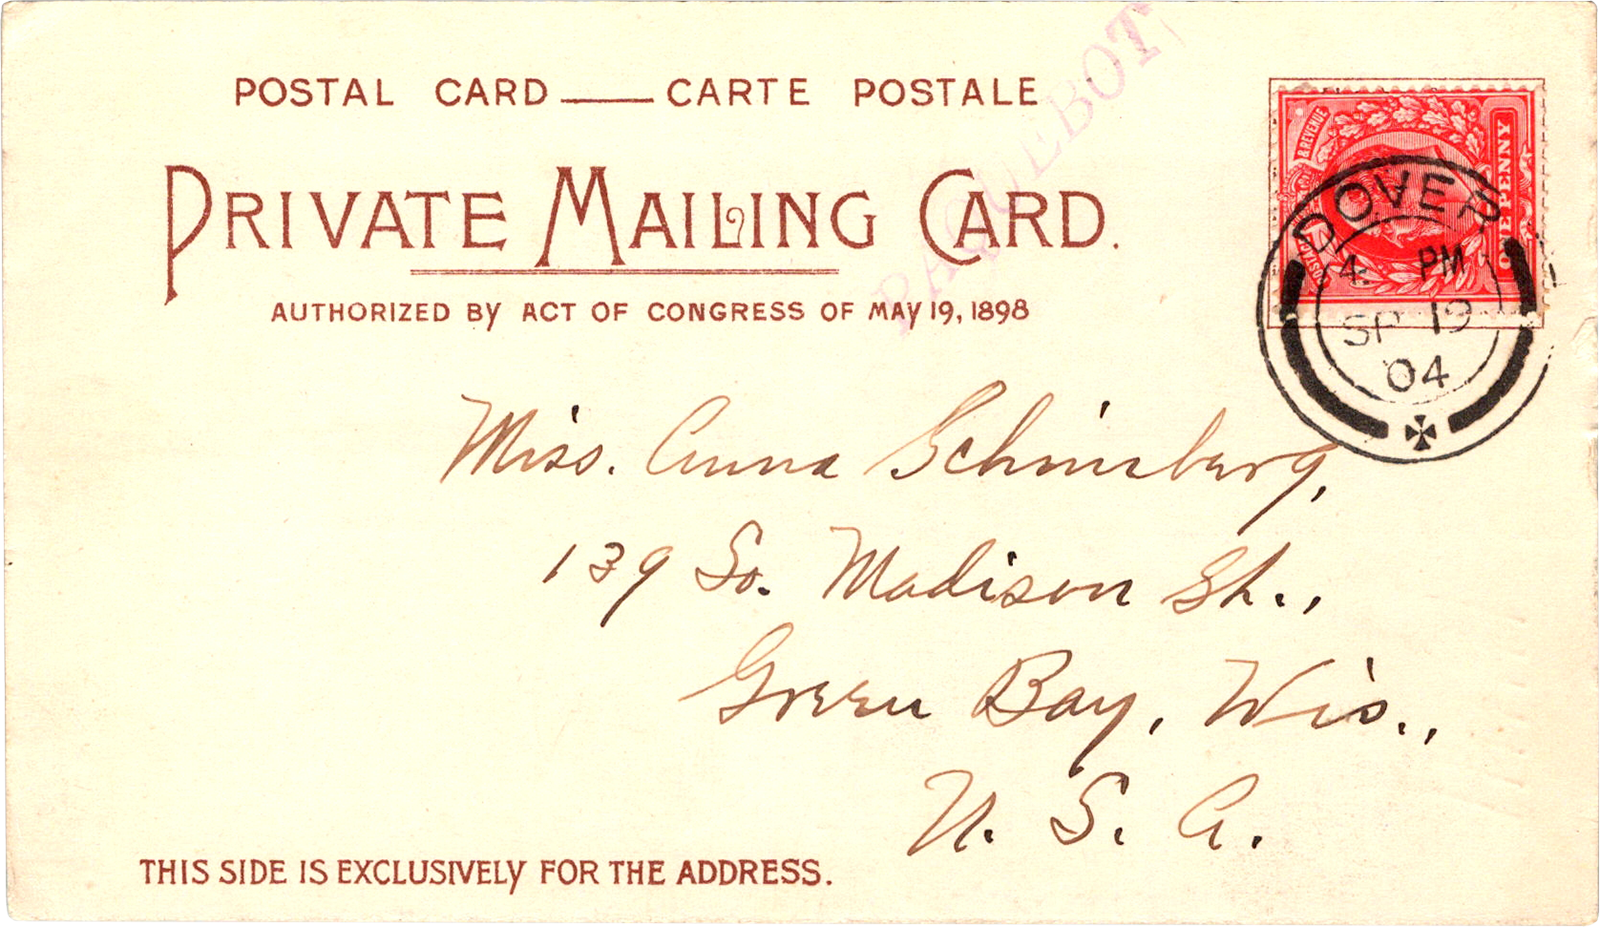 PAQUEBOT
POSTAL CARD — CARTE POSTALE
PRIVATE MAILING CARD.
AUTHORIZED BY ACT OF CONGRESS OF MAY 19, 1898
POSTAGE & REVENUE
ONE PENNY
DOVER
4 PM
SP 19
04
Miss. Anna Schinsberg,
139 So. Madison St.,
Green Bay, Wis.,
U. S. A.
THIS SIDE IS EXCLUSIVELY FOR THE ADDRESS.